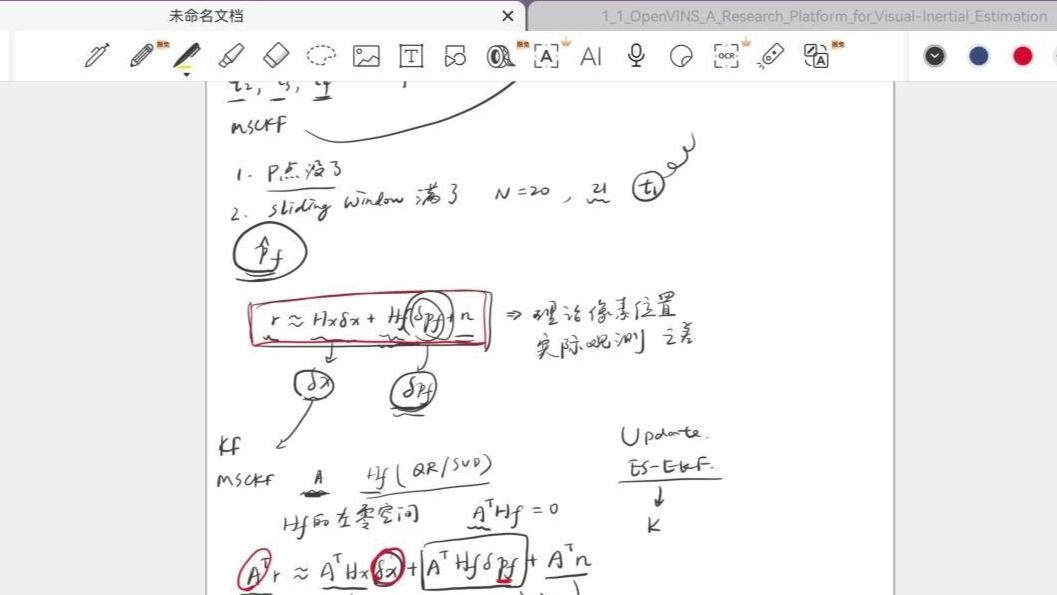 未命名文档
1_1_OpenVINS_A_Research_Platform_for_Visual-Inertial_Estimation
限免 限免 OCR 限免
MSCKF
1. P点没了
2. sliding window 满了 N=20, 21 t₁
p̂f
r ≈ Hxδx + Hfδpf + n ⇒ 理论像素位置
实际观测之差
δx δpf
Update.
KF
ES-EKF.
MSCKF A Hf(QR/SVD)
K
Hf的左零空间 AᵀHf = 0
Aᵀr ≈ AᵀHxδx + AᵀHfδpf + Aᵀn